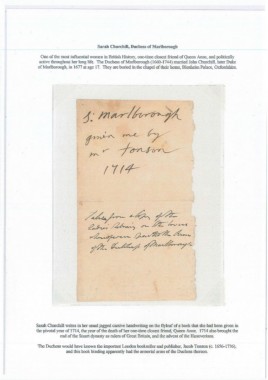 Sarah Churchill, Duchess of Marlborough
One of the most influential women in British History, one-time closest friend of Queen Anne, and politically
active throughout her long life. The Duchess of Marlborough (1660-1744) married John Churchill, later Duke
of Marlborough, in 1677 at age 17. They are buried in the chapel of their home, Blenheim Palace, Oxfordshire.
S: Marlborough
given me by
mr Tonson
1714
Taken from a copy of the
on the
of the
of Marlborough
Sarah Churchill writes in her usual jagged cursive handwriting on the flyleaf of a book that she had been given in
the pivotal year of 1714, the year of the death of her one-time closest friend, Queen Anne. 1714 also brought the
end of the Stuart dynasty as rulers of Great Britain, and the advent of the Hanoverians.
The Duchess would have known the important London bookseller and publisher, Jacob Tonson (c. 1656-1736),
and this book binding apparently had the armorial arms of the Duchess thereon.